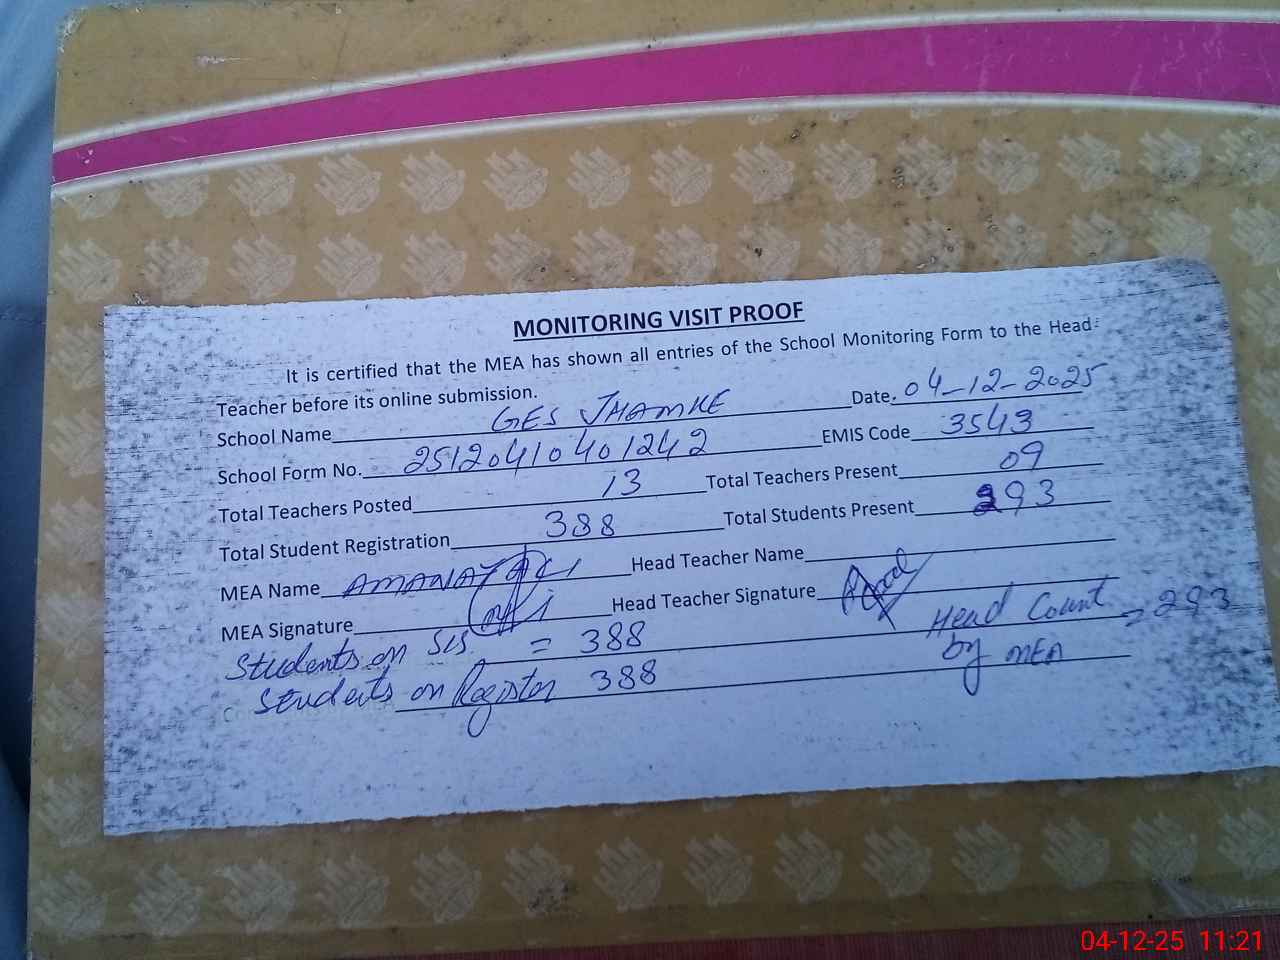 MONITORING VISIT PROOF
It is certified that the MEA has shown all entries of the School Monitoring Form to the Head
Teacher before its online submission.
School Name GES JHAMKE Date. 04-12-2025
School Form No. 2512041040 1242 EMIS Code 3543
Total Teachers Posted 13 Total Teachers Present 09
Total Student Registration 388 Total Students Present 293
MEA Name AMANAT ALI Head Teacher Name
MEA Signature Head Teacher Signature
Students on SIS = 388 Head Count = 293
Students on Register 388 by MEA
04-12-25 11:21